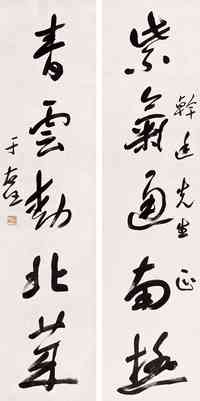 紫氣通南極
幹廷先生正
青雲動北萊
于右任